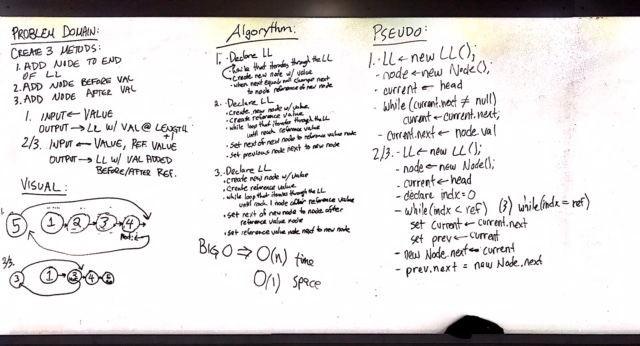 PROBLEM DOMAIN:
CREATE 3 METODS:
1. ADD NODE TO END
OF LL
2. ADD NODE BEFORE VAL
3. ADD NODE AFTER VAL
1. INPUT ← VALUE
OUTPUT → LL W/ VAL @ LENGTH
+1
2/3. INPUT ← VALUE, REF VALUE
OUTPUT → LL W/ VAL ADDED
BEFORE/AFTER REF.
VISUAL:
1.
5 1 → 2 → 3 → 4 →
NULL ←
2/3.
3 1 → 3 → 4 → 5
Algorythm:
1. Declare LL
• while that iterates through the LL
• Create new node w/ value
• when next equal null change next
to node reference of new node
2. Declare LL
• Create new node w/ value
• Create reference value
• while loop that iterates through the LL
until reach reference value
• Set next of new node to reference value node
• Set previous node next to new node
3. Declare LL
• create new node w/ value
• Create reference value
• while loop that iterates through the LL
until reach 1 node after reference value
• set next of new node to node after
reference value node
• set reference value node next to new node
BIG O ⇒ O(n) time
O(1) space
PSEUDO:
1. - LL ← new LL();
- node ← new Node();
- current ← head
- while (current.next ≠ null)
current ← current.next;
- current.next ← node.val
2/3. - LL ← new LL();
- node ← new Node();
- current ← head
- declare indx = 0
- while (indx < ref) (3) while(indx = ref)
set current ← current.next
set prev ← current
- new Node.next ← current
- prev.next = new Node.next